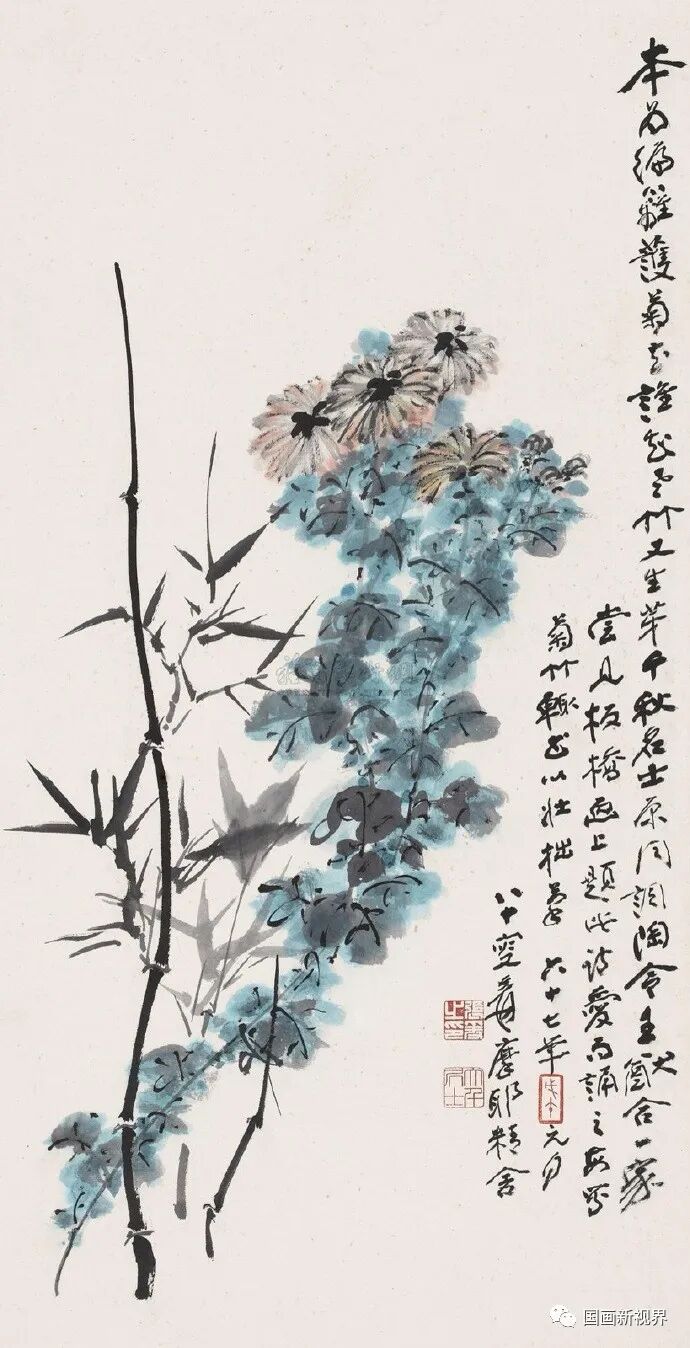 本為編籬護菊花誰知老竹又生芽千秋名士原同調陶令王猷合一家
嘗見板橋畫上題此詩愛而誦之每寫
菊竹輒書以壯拙筆 六十七年戊午元月
八十叟爰摩耶精舍
張爰之印
大千居士
国画新视界